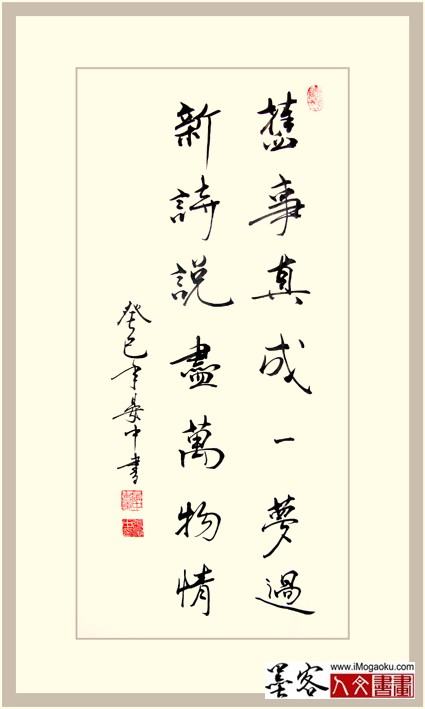 舊事真成一夢過
新詩説盡萬物情
癸巳年晏中書
墨客
www.iMogaoku.com
人文書畫